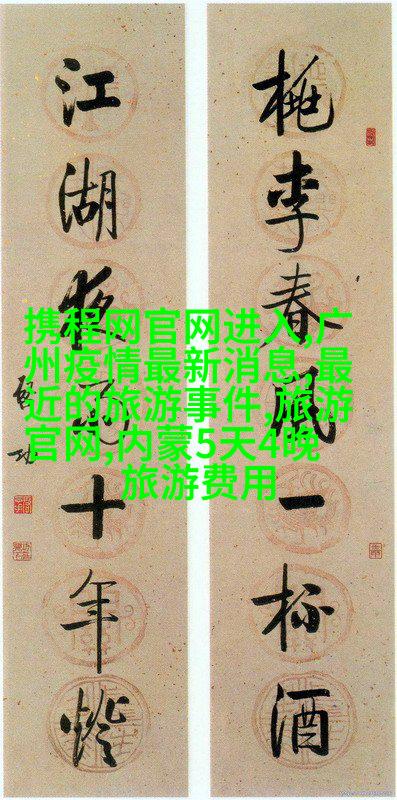 桃李春風一杯酒
江湖夜雨十年燈
啓功
携程网官网进入,广
州疫情最新消息,最
近的旅游事件,旅游
官网,内蒙5天4晚
旅游费用